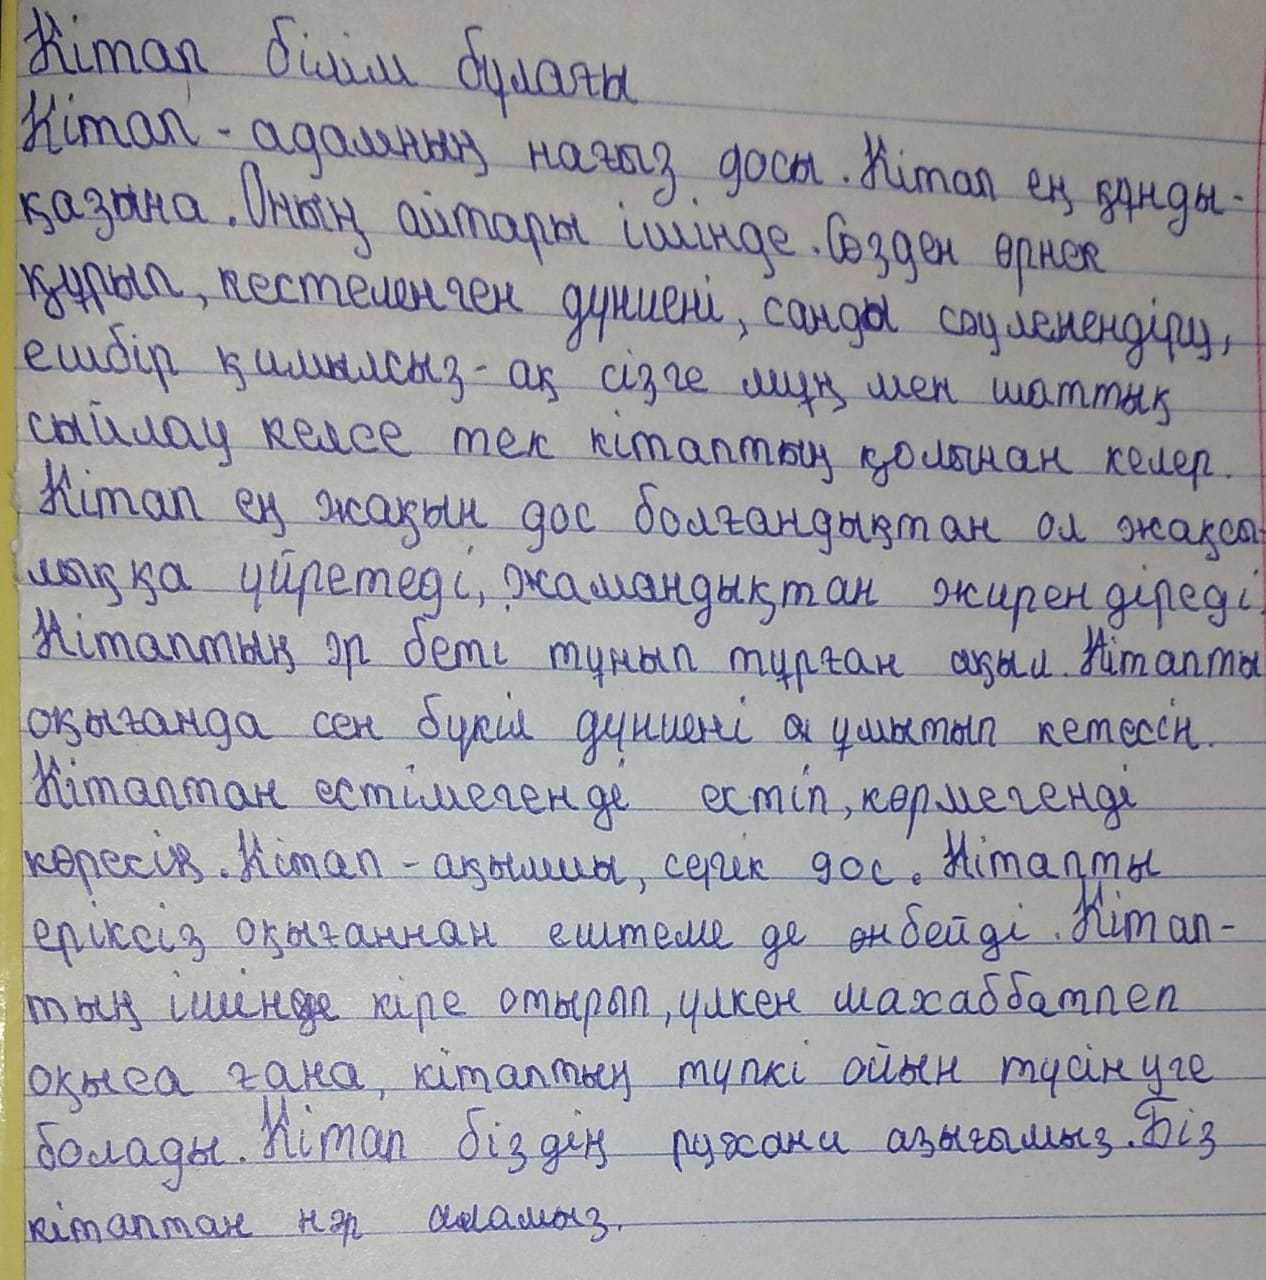 Кітап білім бұлағы
Кітап - адамның нағыз досы. Кітап ең құнды-
қазына. Оның айтары ішінде. Сөзден өрнек
құрып, кестеленген дүниені, санды сәулелендіру,
ешбір қимылсыз - ақ сізге мұң мен шаттық
сыйлау келсе тек кітаптың қолынан келер.
Кітап ең жақын дос болғандықтан ол жақсы-
лыққа үйретеді, жамандықтан жирендіреді.
Кітаптың әр беті тұнып тұрған ақыл. Кітапты
оқығанда сен бүкіл дүниені ұмытып кетесін.
Кітаптан естімегенде естіп, көрмегенді
көресің. Кітап - ақылшы, серік дос. Кітапты
еріксіз оқығаннан ештеме де өнбейді. Кітап-
тың ішінде кіре отырып, үлкен махаббатпен
оқыса ғана, кітаптың түпкі ойын түсінуге
болады. Кітап біздің рухани азығымыз. Біз
кітаптан нәр аламыз.